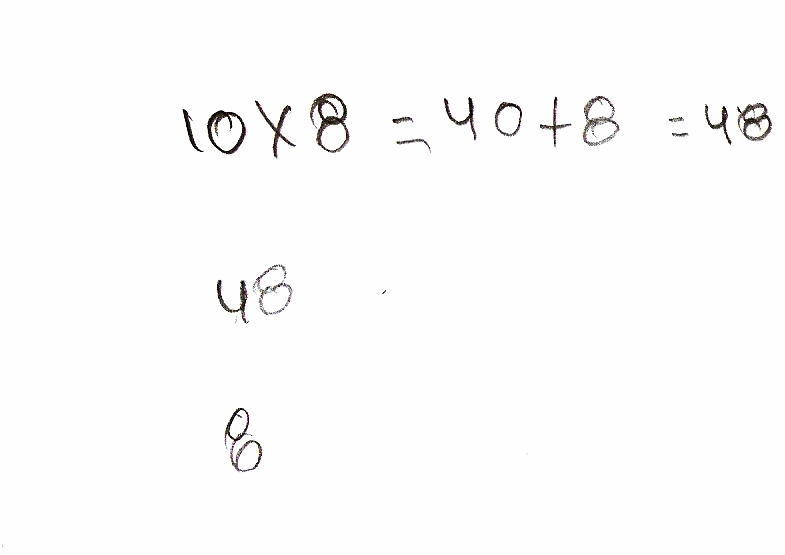 10 X 8 = 40 + 8 = 48
48
8